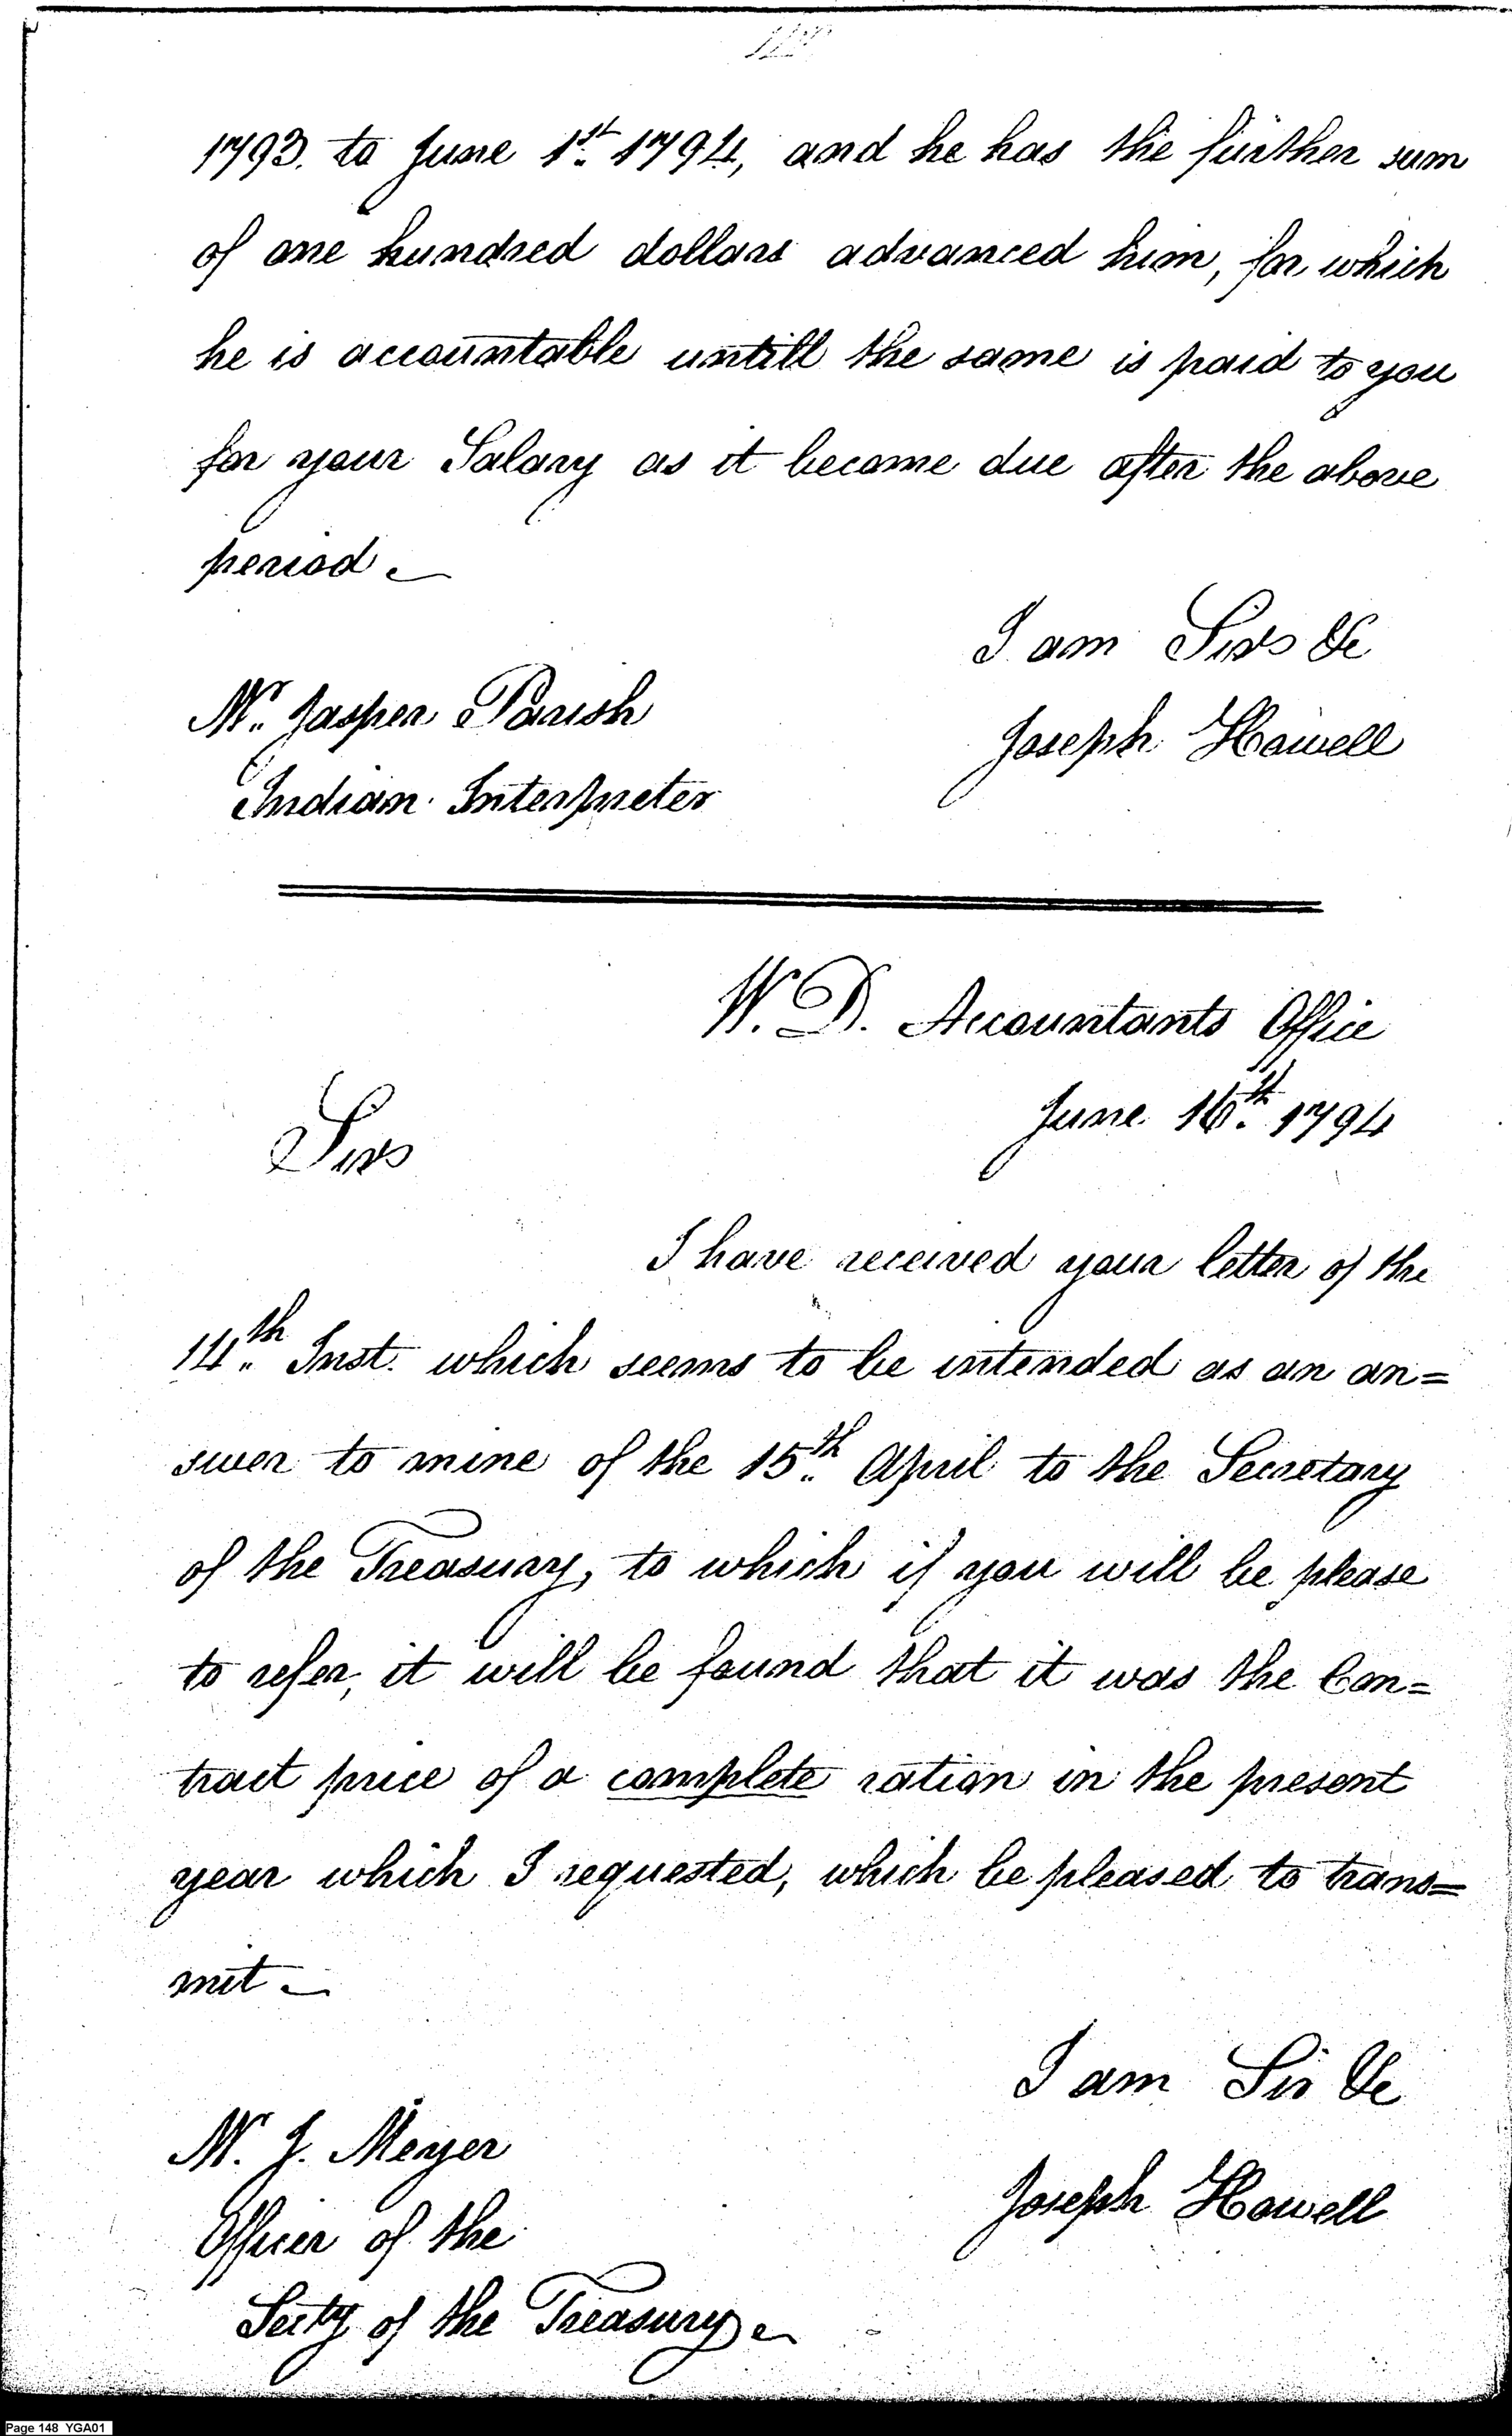 1793. to June 1st. 1794, and he has the further sum
of one hundred dollars advanced him, for which
he is accountable untill the same is paid to you
for your Salary as it become due after the above
period.
I am Sir &c
Mr. Jasper Parish
Joseph Howell
Indian Interpreter
W. D. Accountants Office
June 16th. 1794
Sir
I have received your letter of the
14th. Inst. which seems to be intended as an an=
swer to mine of the 15th. April to the Secretary
of the Treasury, to which if you will be please
to refer, it will be found that it was the Con=
tract price of a complete ration in the present
year which I requested, which be pleased to trans=
mit.
I am Sir &c
Mr. J. Meyer
Joseph Howell
Officer of the
Secty of the Treasury.
Page 148 YGA01